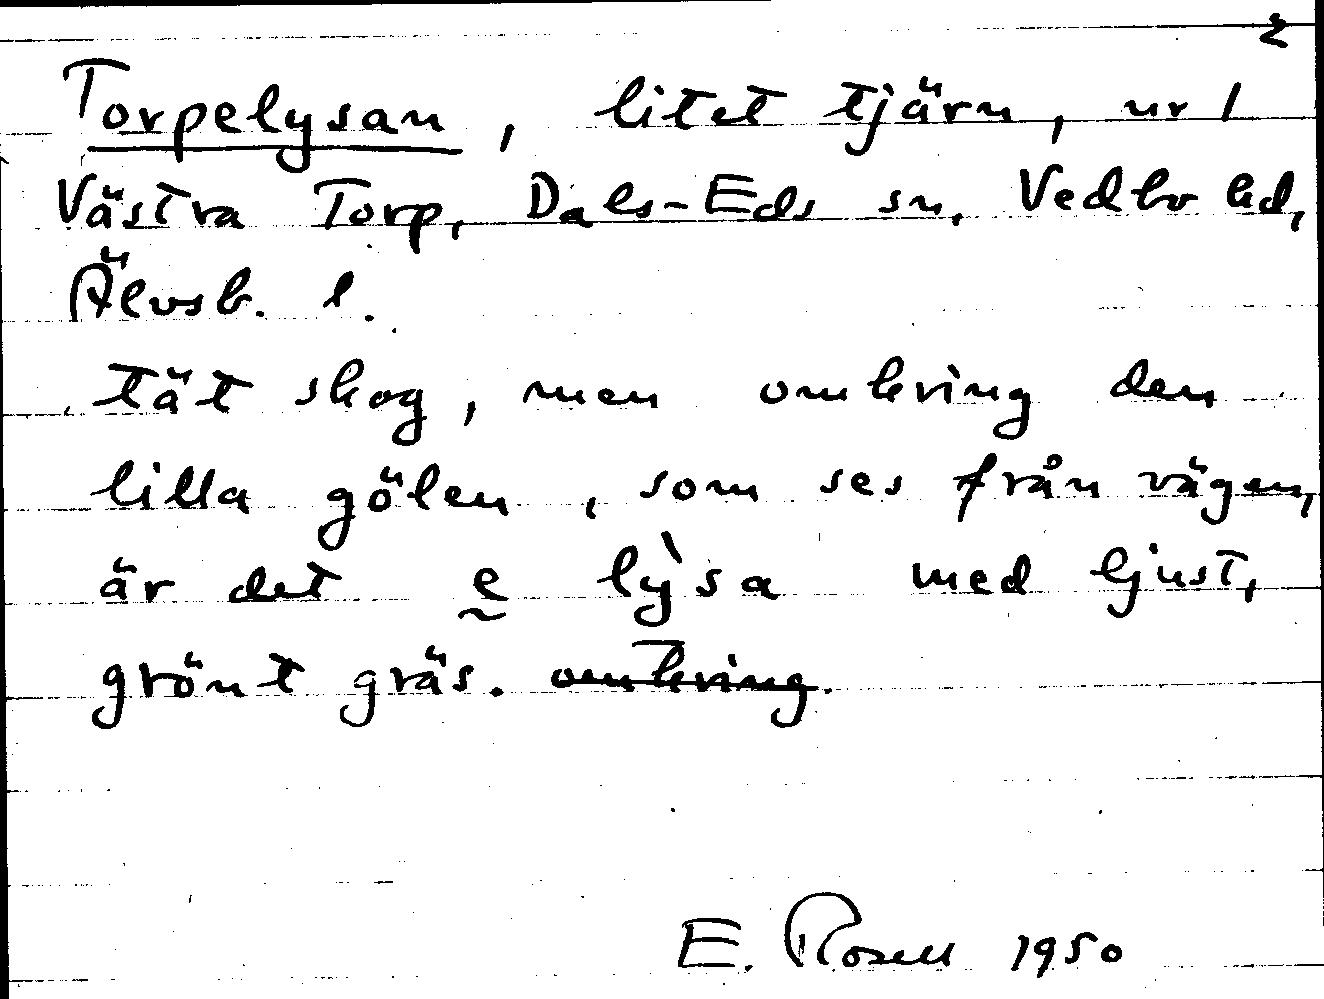 2
Torpelysan, litet tjärn, nr 1
Västra Torp, Dals-Eds sn, Vedbo hd,
Älvsb. l.
tät skog, men omkring den
lilla gölen, som ses från vägen,
är det ḛ lỳsa med ljust,
grönt gräs. ~~omkring~~.
E. Rosell 1950